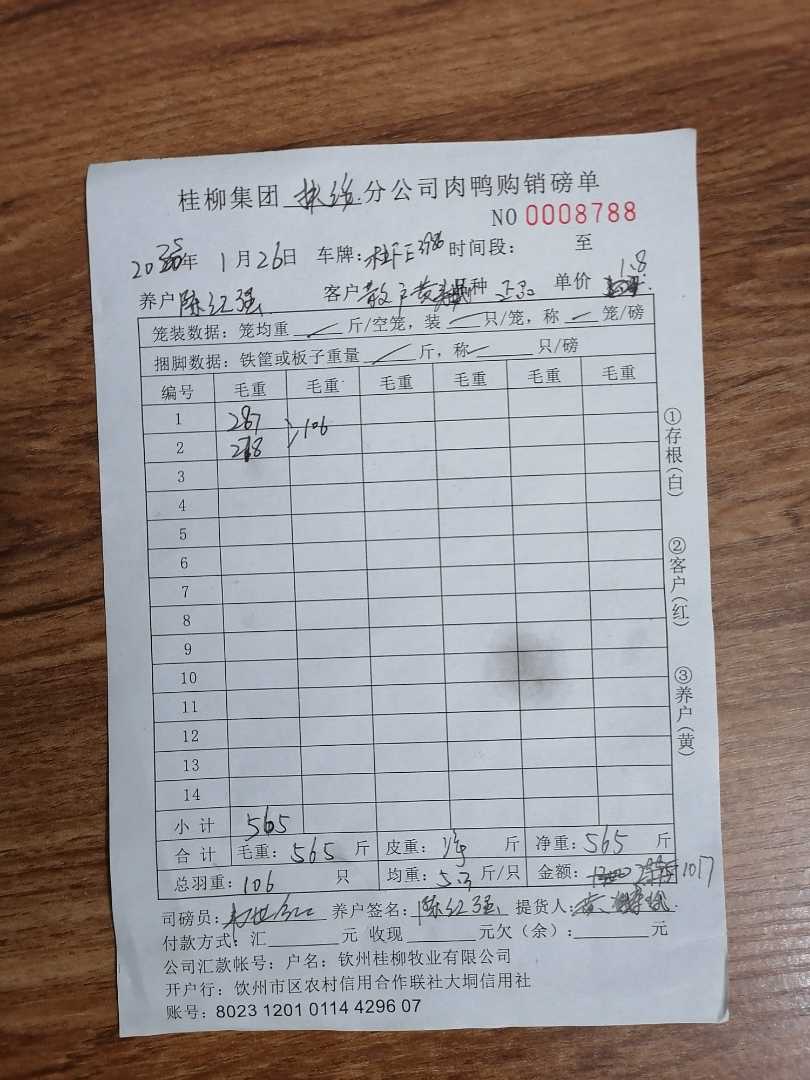 桂柳集团 分公司肉鸭购销磅单
NO 0008788
20 年 1月26日 车牌: 时间段: 至
养户 陈红强 客户 散户黄 品种 单价 1.8
笼装数据: 笼均重 斤/空笼, 装 只/笼, 称 笼/磅
捆脚数据: 铁筐或板子重量 斤, 称 只/磅
编号 毛重 毛重 毛重 毛重 毛重 毛重
1 287
106
2 278
3
4
5
6
7
8
9
10
11
12
13
14
小计 565
合计 毛重: 565 斤 皮重: 净 斤 净重: 565 斤
总羽重: 106 只 均重: 5.3 斤/只 金额: 1017
司磅员: 养户签名: 陈红强 提货人: 黄
付款方式: 汇 元 收现 元欠(余): 元
公司汇款帐号: 户名: 钦州桂柳牧业有限公司
开户行: 钦州市区农村信用合作联社大垌信用社
账号: 8023 1201 0114 4296 07
①存根(白)
②客户(红)
③养户(黄)